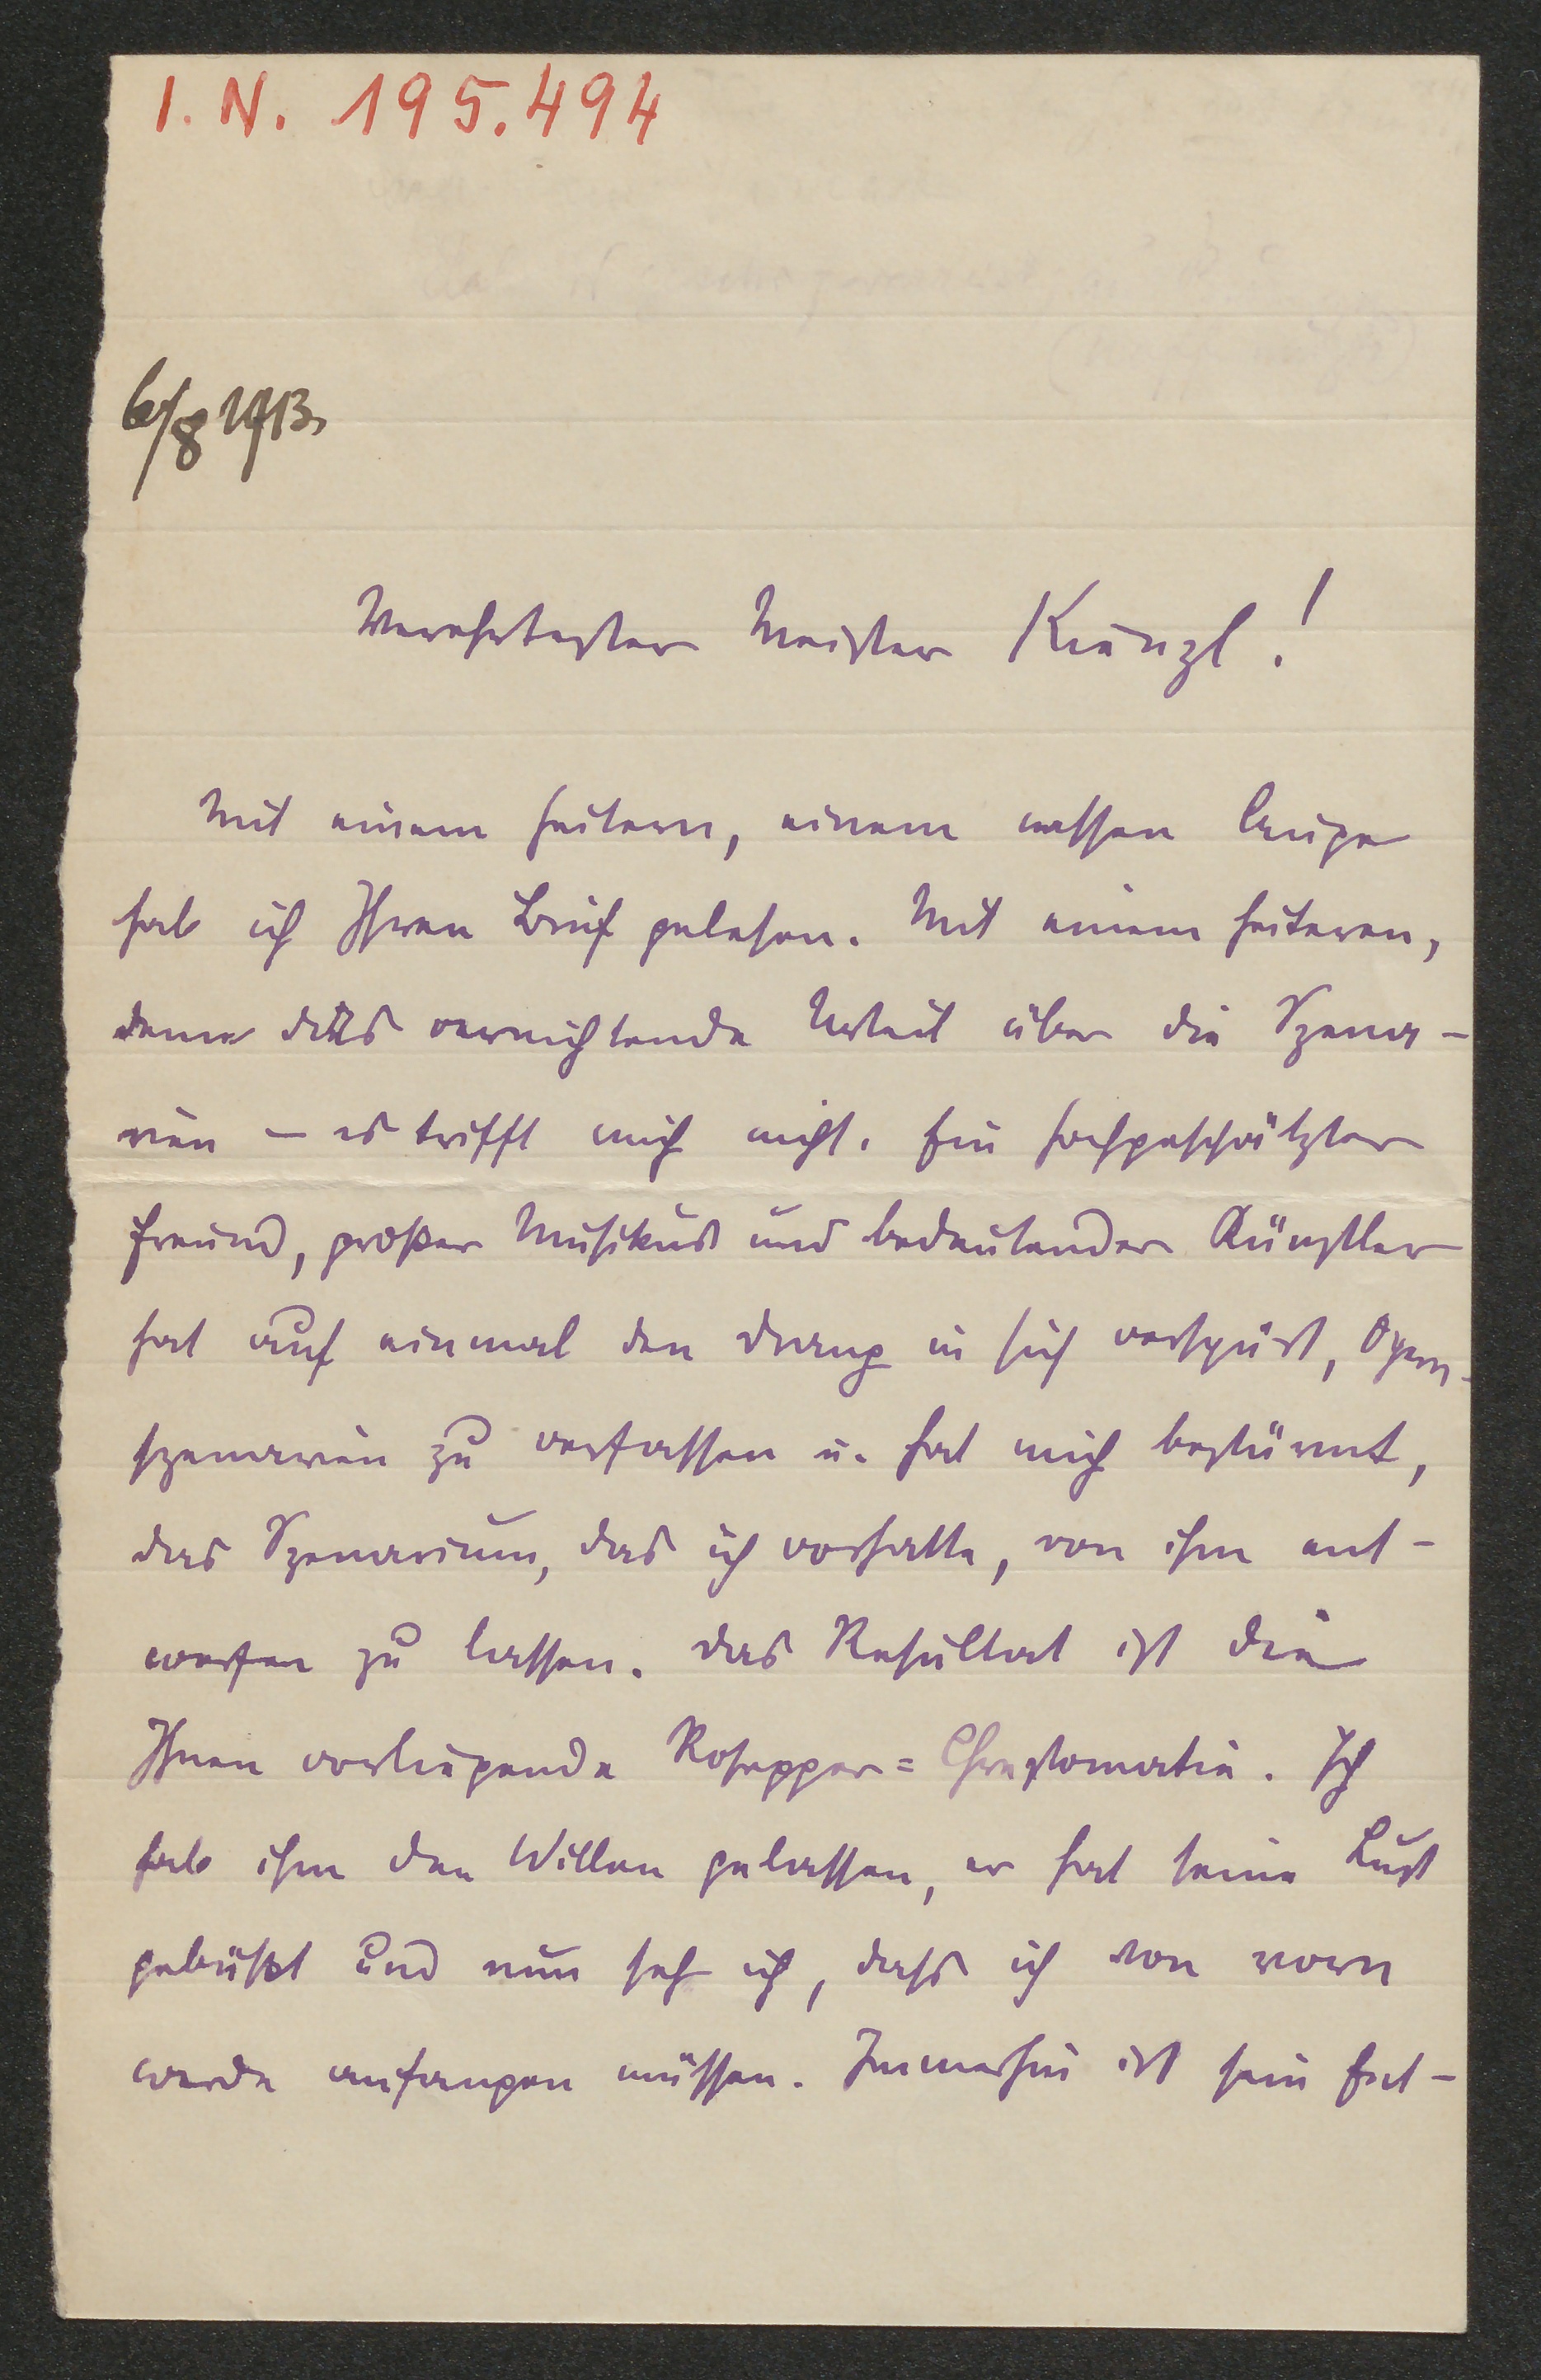 I. N. 195.494
6/8 1913.
Verehrtester Meister Kienzl!
Mit einem heitern, einem nassen Auge
hab ich Ihren Brief gelesen. Mit einem heiteren,
denn das vernichtende Urteil über die Szena-
rien – es trifft mich nicht. Ein hochgeschätzter
Freund, großer Musikus und bedeutender Künstler
hat auf einmal den Drang in sich verspürt, Opern-
szenarien zu verfassen u. hat mich bestürmt,
das Szenarium, das ich vorhatte, von ihm ent-
werfen zu lassen. Das Resultat ist die
Ihnen vorliegende Rosegger=Chrestomatie. Ich
hab ihm den Willen gelassen, er hat seine Lust
gebüßt und nun seh ich, dass ich von vorn
werde anfangen müssen. Immerhin ist sein Ent-